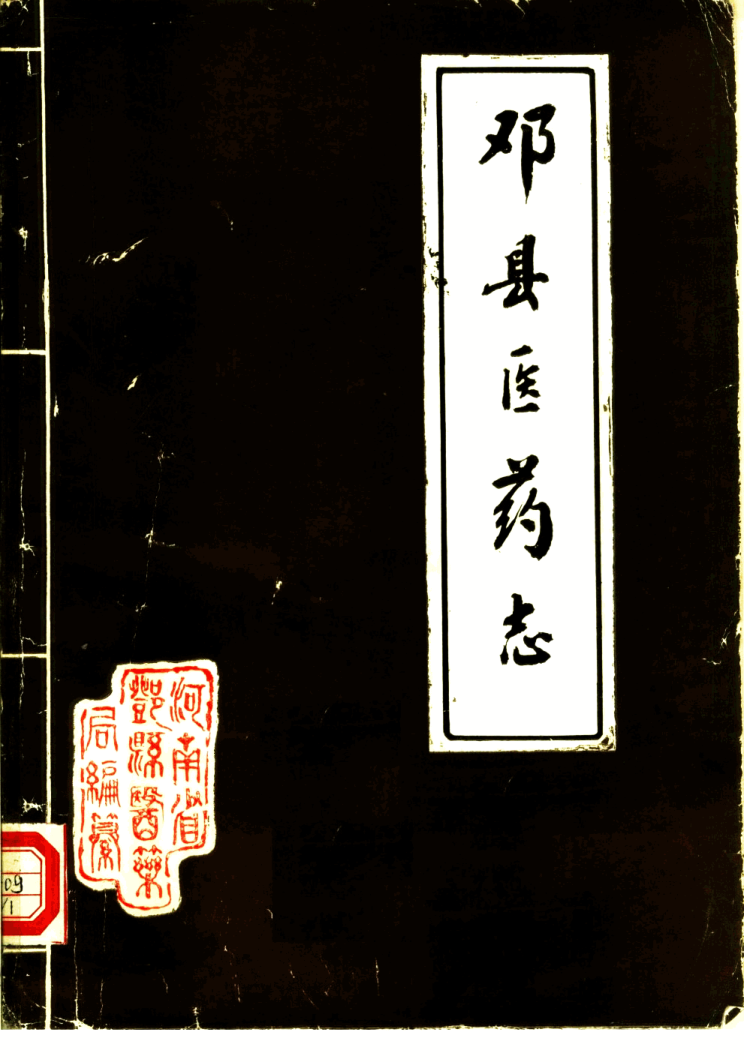 邓县医药志
河南省
鄧縣醫藥
局編纂
09
/1